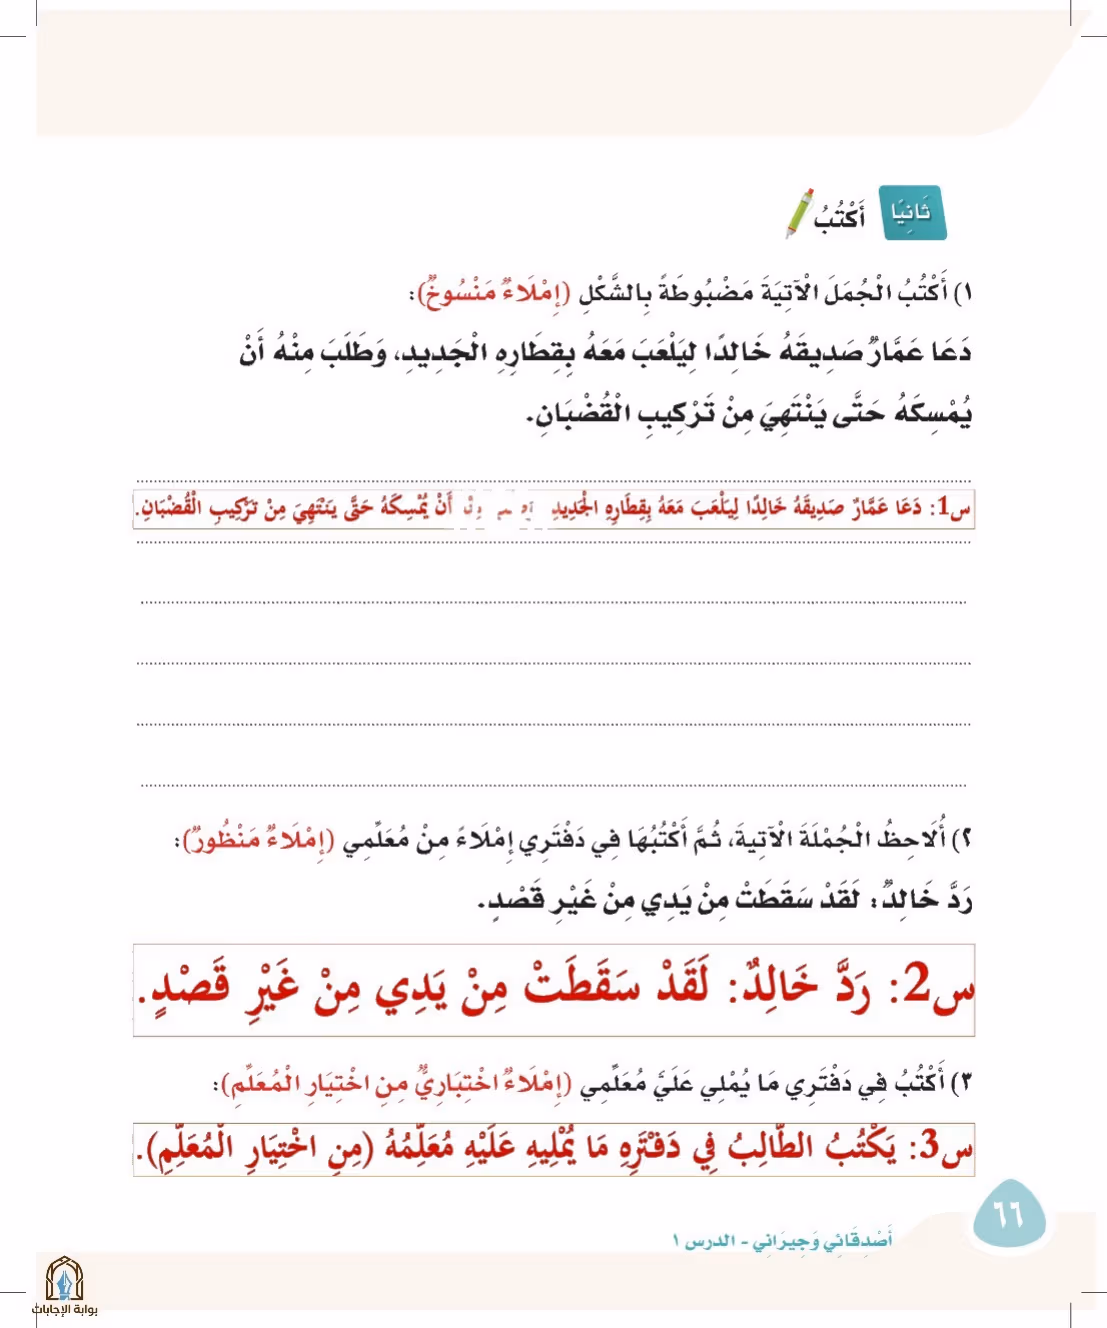 ثَانِيًا
أَكْتُبُ
١) أَكْتُبُ الْجُمَلَ الْآتِيَةَ مَضْبُوطَةً بِالشَّكْلِ (إِمْلَاءٌ مَنْسُوخٌ):
دَعَا عَمَّارٌ صَدِيقَهُ خَالِدًا لِيَلْعَبَ مَعَهُ بِقِطَارِهِ الْجَدِيدِ، وَطَلَبَ مِنْهُ أَنْ
يُمْسِكَهُ حَتَّى يَنْتَهِيَ مِنْ تَرْكِيبِ الْقُضْبَانِ.
س1: دَعَا عَمَّارٌ صَدِيقَهُ خَالِدًا لِيَلْعَبَ مَعَهُ بِقِطَارِهِ الْجَدِيدِ أَنْ يُمْسِكَهُ حَتَّى يَنْتَهِيَ مِنْ تَرْكِيبِ الْقُضْبَانِ.
٢) أُلَاحِظُ الْجُمْلَةَ الْآتِيةَ، ثُمَّ أَكْتُبُهَا فِي دَفْتَرِي إِمْلَاءً مِنْ مُعَلِّمِي (إِمْلَاءٌ مَنْظُورٌ):
رَدَّ خَالِدٌ: لَقَدْ سَقَطَتْ مِنْ يَدِي مِنْ غَيْرِ قَصْدٍ.
س2: رَدَّ خَالِدٌ: لَقَدْ سَقَطَتْ مِنْ يَدِي مِنْ غَيْرِ قَصْدٍ.
٣) أَكْتُبُ فِي دَفْتَرِي مَا يُمْلِي عَلَيَّ مُعَلِّمِي (إِمْلَاءٌ اخْتِبَارِيٌّ مِنِ اخْتِيَارِ الْمُعَلِّمِ):
س3: يَكْتُبُ الطَّالِبُ فِي دَفْتَرِهِ مَا يُمْلِيهِ عَلَيْهِ مُعَلِّمُهُ (مِنِ اخْتِيَارِ الْمُعَلِّمِ).
٦٦
أَصْدِقَائِي وَجِيرَانِي - الدرس ١
بوابة الإجابات